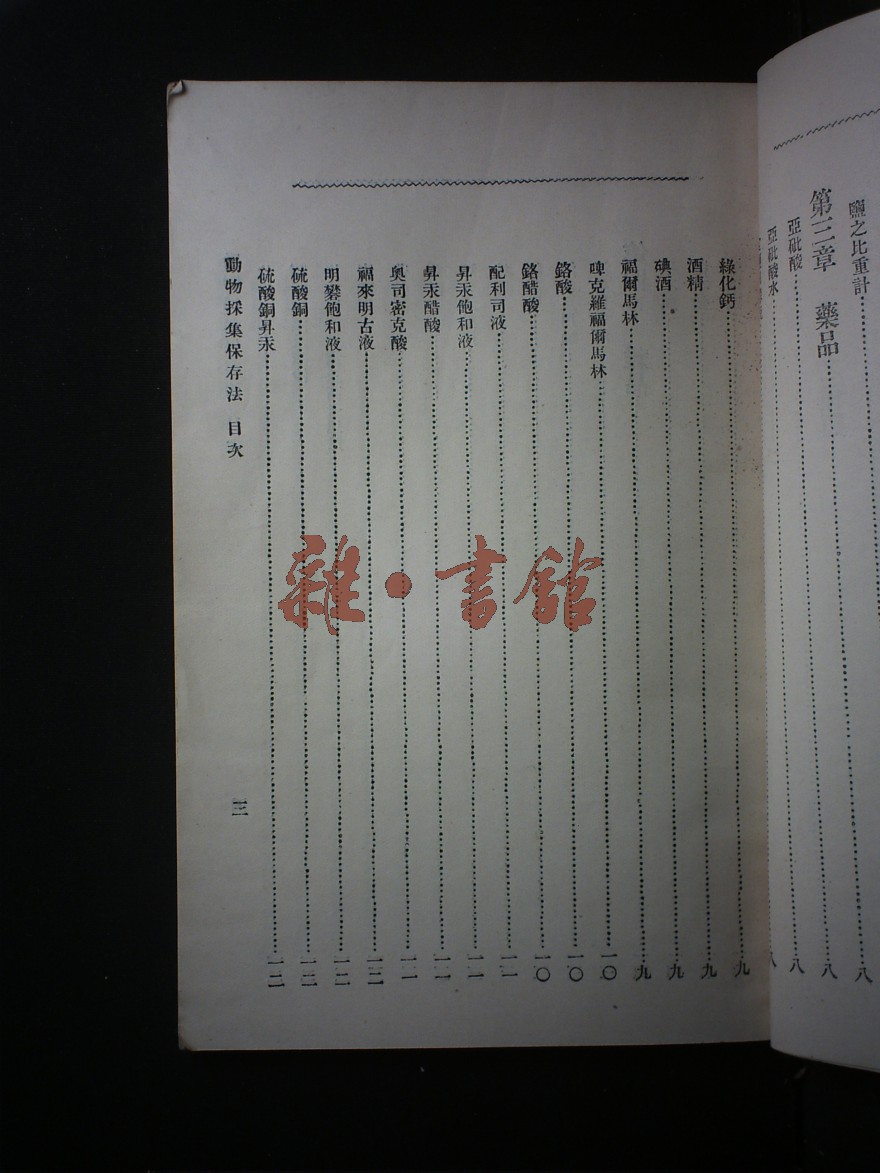 鹽之比重計……八
第三章　藥品……八
亞砒酸……八
亞砒酸水……八
綠化鈣……九
酒精……九
碘酒……九
福爾馬林……九
啤克羅福爾馬林……一〇
鉻酸……一〇
鉻醋酸……一〇
配利司液……一一
昇汞飽和液……一一
昇汞醋酸……一一
奧司密克酸……一一
福來明古液……一二
明礬飽和液……一二
硫酸銅……一二
硫酸銅昇汞……一二
動物採集保存法　目次
三
雜·書館